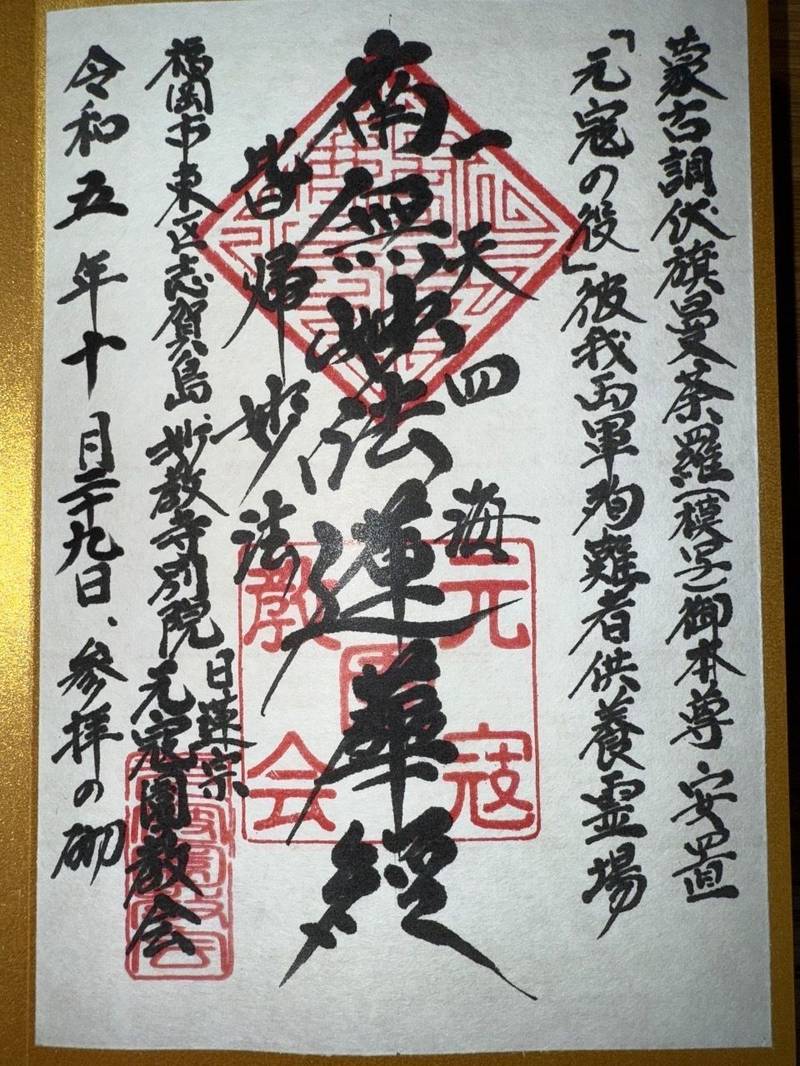 蒙古調伏旗曼荼羅(模写)御本尊 安置
「元寇の役」彼我両軍殉難者供養霊場
一天四海
南無妙法蓮華経
皆帰妙法
元寇
教会
福岡市東区志賀島、妙教寺別院
日蓮宗
元寇園教会
令和五年十月二十九日、参拝の砌